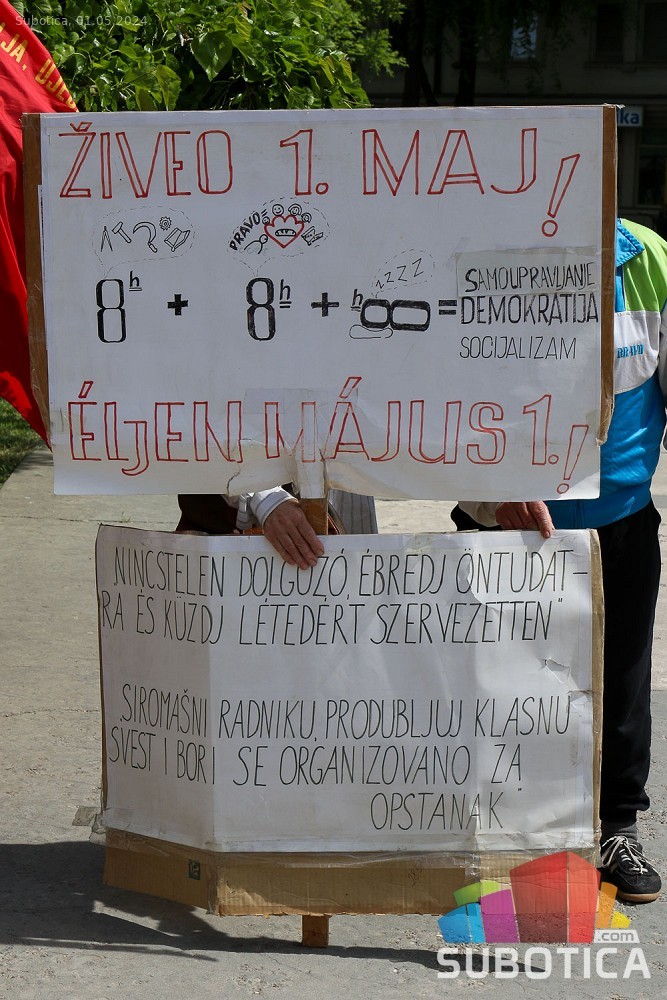 Subotica, 01.05.2024.
JA, UJED
ŽIVEO 1. MAJ!
PRAVO
ZZZZ
8h + 8h + h8 = SAMOUPRAVLJANJE
DEMOKRATIJA
SOCIJALIZAM
ÉLJEN MÁJUS 1.!
„NINCSTELEN DOLGOZÓ, ÉBREDJ ÖNTUDAT-
RA ÉS KÜZDJ LÉTEDÉRT SZERVEZETTEN"
„SIROMAŠNI RADNIKU, PRODUBLJUJ KLASNU
SVEST I BORI SE ORGANIZOVANO ZA
OPSTANAK"
.com
SUBOTICA